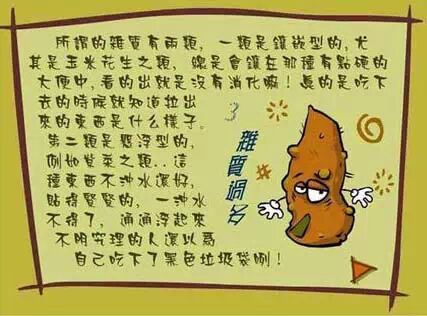 所謂的雜質有兩類，一類是鑲嵌型的，尤
其是玉米花生之類，總是會鑲在那種有點硬的
大便中，看的出就是沒有消化嘛！真的是吃下
去的時候就知道拉出
來的東西是什么樣子。
第二類是懸浮型的，
例如紫菜之類..這
種東西不沖水還好，
貼得緊緊的，一沖水
不得了，通通浮起來
不明究理的人還以為
自己吃下了黑色垃圾袋咧！
3
雜質過多